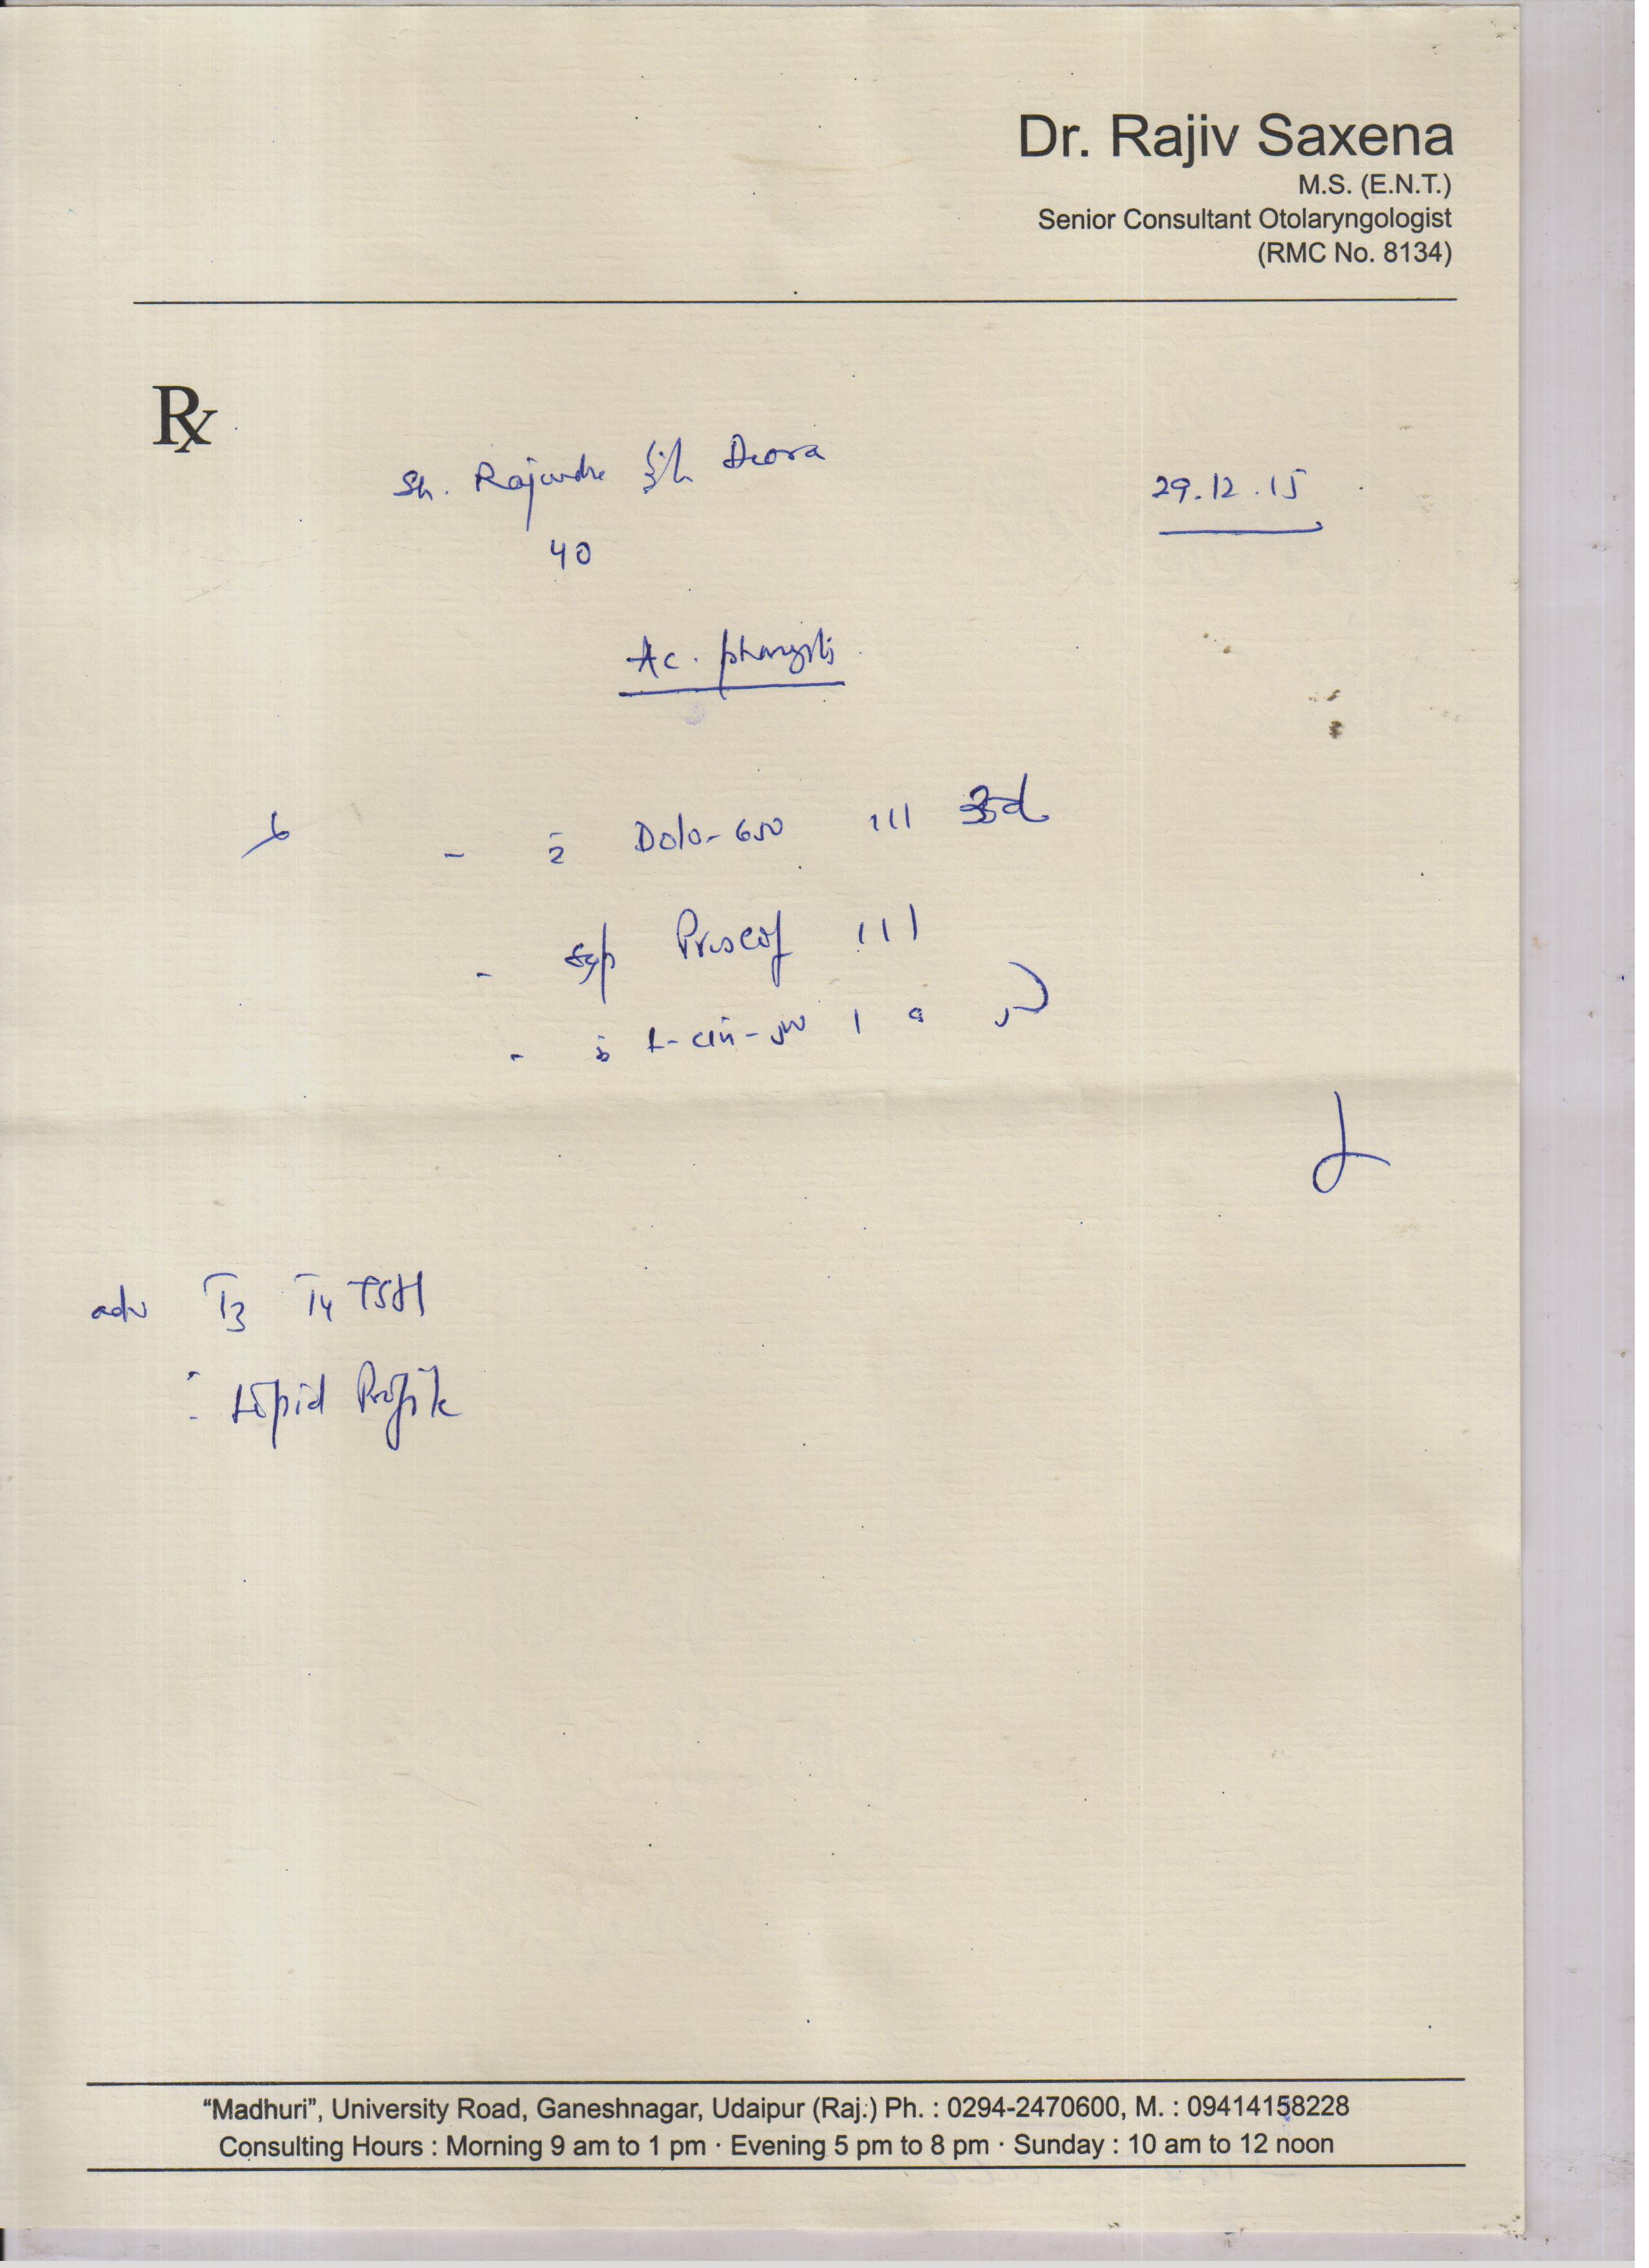 Dr. Rajiv Saxena
M.S. (E.N.T.)
Senior Consultant Otolaryngologist
(RMC No. 8134)
Rx
Sh. Rajendra S/h Deora
29.12.15
40
Ac. pharyngitis
- Dolo-650 111 3d
- Syp 111
- L-cin-500 1
adv T3 T4 TSH
: Lipid Profile
“Madhuri”, University Road, Ganeshnagar, Udaipur (Raj.) Ph. : 0294-2470600, M. : 09414158228
Consulting Hours : Morning 9 am to 1 pm · Evening 5 pm to 8 pm · Sunday : 10 am to 12 noon